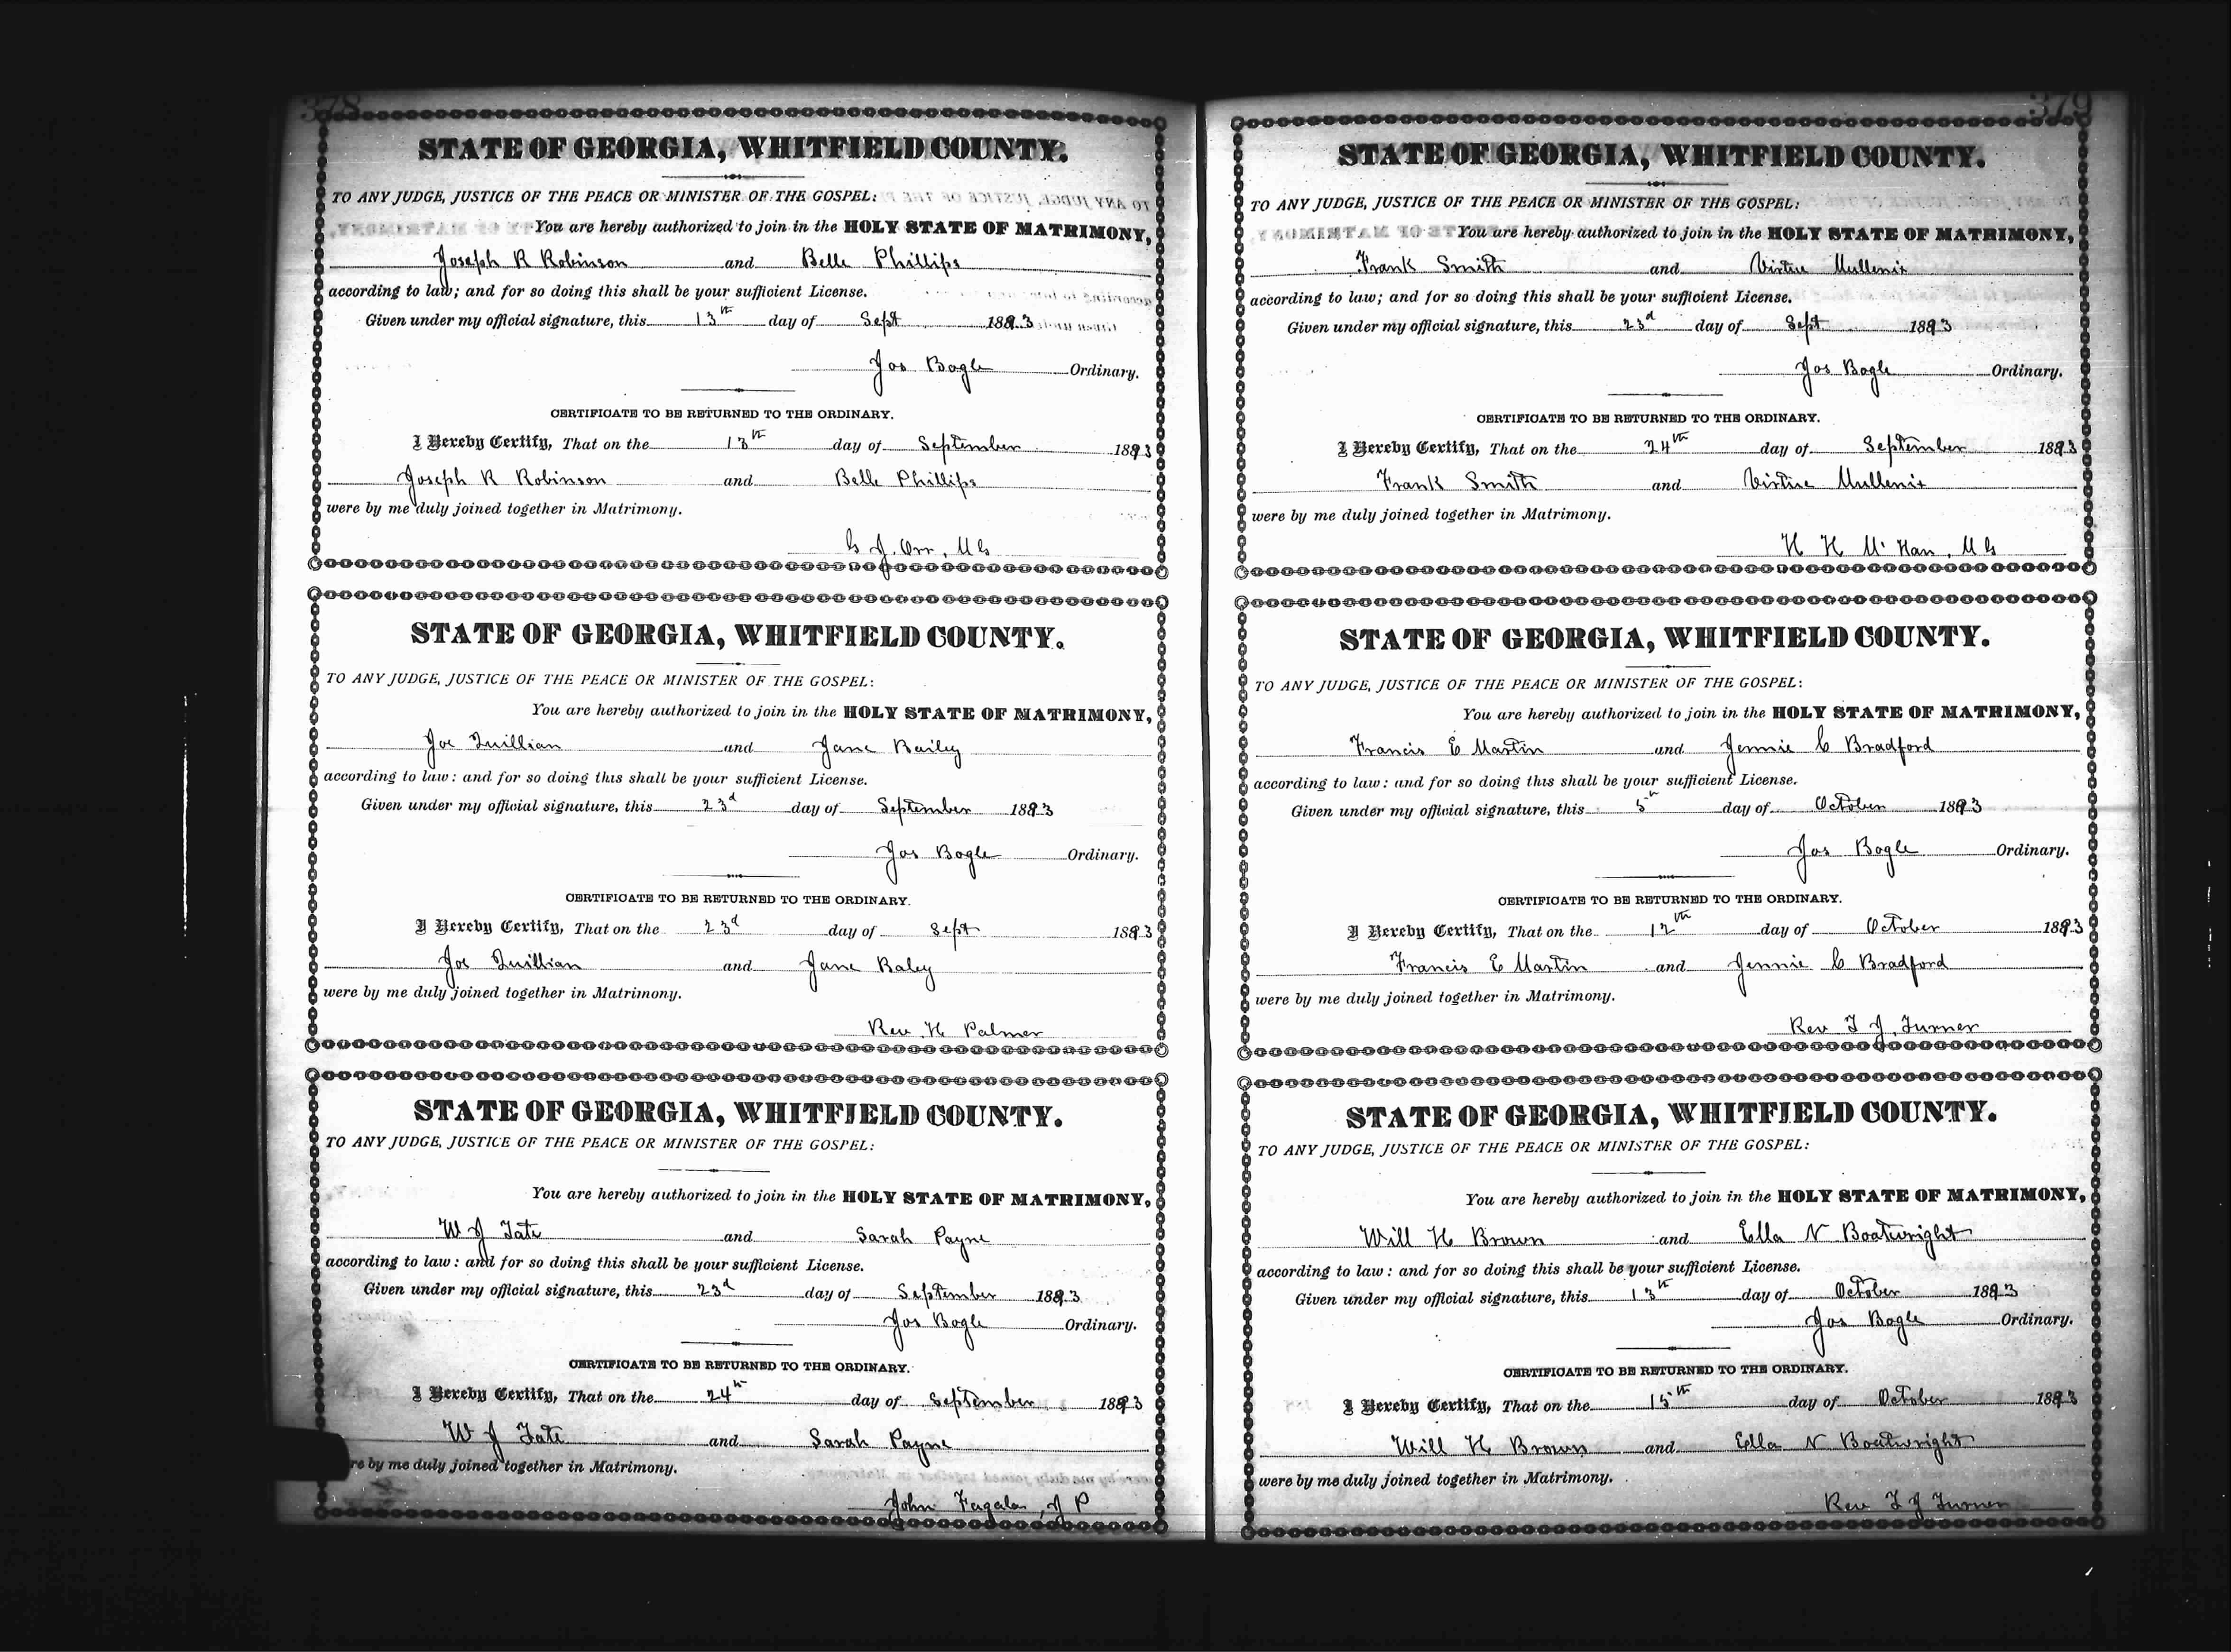 378
STATE OF GEORGIA, WHITFIELD COUNTY.
TO ANY JUDGE, JUSTICE OF THE PEACE OR MINISTER OF THE GOSPEL:
You are hereby authorized to join in the HOLY STATE OF MATRIMONY,
Joseph R Robinson and Belle Phillips
according to law; and for so doing this shall be your sufficient License.
Given under my official signature, this 13th day of Sept 1893
Jos Bogle Ordinary.
CERTIFICATE TO BE RETURNED TO THE ORDINARY.
I Hereby Certify, That on the 13th day of September 1893
Joseph R Robinson and Belle Phillips
were by me duly joined together in Matrimony.
G J. Orr, M G
STATE OF GEORGIA, WHITFIELD COUNTY.
TO ANY JUDGE, JUSTICE OF THE PEACE OR MINISTER OF THE GOSPEL:
You are hereby authorized to join in the HOLY STATE OF MATRIMONY,
Joe Quillian and Jane Bailey
according to law: and for so doing this shall be your sufficient License.
Given under my official signature, this 23d day of September 1893
Jos Bogle Ordinary.
CERTIFICATE TO BE RETURNED TO THE ORDINARY.
I Hereby Certify, That on the 23d day of Sept 1893
Joe Quillian and Jane Baley
were by me duly joined together in Matrimony.
Rev. H Palmer
STATE OF GEORGIA, WHITFIELD COUNTY.
TO ANY JUDGE, JUSTICE OF THE PEACE OR MINISTER OF THE GOSPEL:
You are hereby authorized to join in the HOLY STATE OF MATRIMONY,
W J Tate and Sarah Payne
according to law: and for so doing this shall be your sufficient License.
Given under my official signature, this 23d day of September 1893
Jos Bogle Ordinary.
CERTIFICATE TO BE RETURNED TO THE ORDINARY.
I Hereby Certify, That on the 24th day of September 1893
W J Tate and Sarah Payne
re by me duly joined together in Matrimony.
John Fagala, J P
379
STATE OF GEORGIA, WHITFIELD COUNTY.
TO ANY JUDGE, JUSTICE OF THE PEACE OR MINISTER OF THE GOSPEL:
You are hereby authorized to join in the HOLY STATE OF MATRIMONY,
Frank Smith and Virtue Mullenix
according to law; and for so doing this shall be your sufficient License.
Given under my official signature, this 23d day of Sept 1893
Jos Bogle Ordinary.
CERTIFICATE TO BE RETURNED TO THE ORDINARY.
I Hereby Certify, That on the 24th day of September 1893
Frank Smith and Virtue Mullenix
were by me duly joined together in Matrimony.
H H McHan, M G
STATE OF GEORGIA, WHITFIELD COUNTY.
TO ANY JUDGE, JUSTICE OF THE PEACE OR MINISTER OF THE GOSPEL:
You are hereby authorized to join in the HOLY STATE OF MATRIMONY,
Francis E Martin and Jennie C Bradford
according to law: and for so doing this shall be your sufficient License.
Given under my official signature, this 5th day of October 1893
Jos Bogle Ordinary.
CERTIFICATE TO BE RETURNED TO THE ORDINARY.
I Hereby Certify, That on the 12th day of October 1893
Francis E Martin and Jennie C Bradford
were by me duly joined together in Matrimony.
Rev T J. Turner
STATE OF GEORGIA, WHITFIELD COUNTY.
TO ANY JUDGE, JUSTICE OF THE PEACE OR MINISTER OF THE GOSPEL:
You are hereby authorized to join in the HOLY STATE OF MATRIMONY,
Will H Brown and Ella N Boatwright
according to law: and for so doing this shall be your sufficient License.
Given under my official signature, this 13th day of October 1893
Jos Bogle Ordinary.
CERTIFICATE TO BE RETURNED TO THE ORDINARY.
I Hereby Certify, That on the 15th day of October 1893
Will H Brown and Ella N Boatwright
were by me duly joined together in Matrimony.
Rev T J Turner